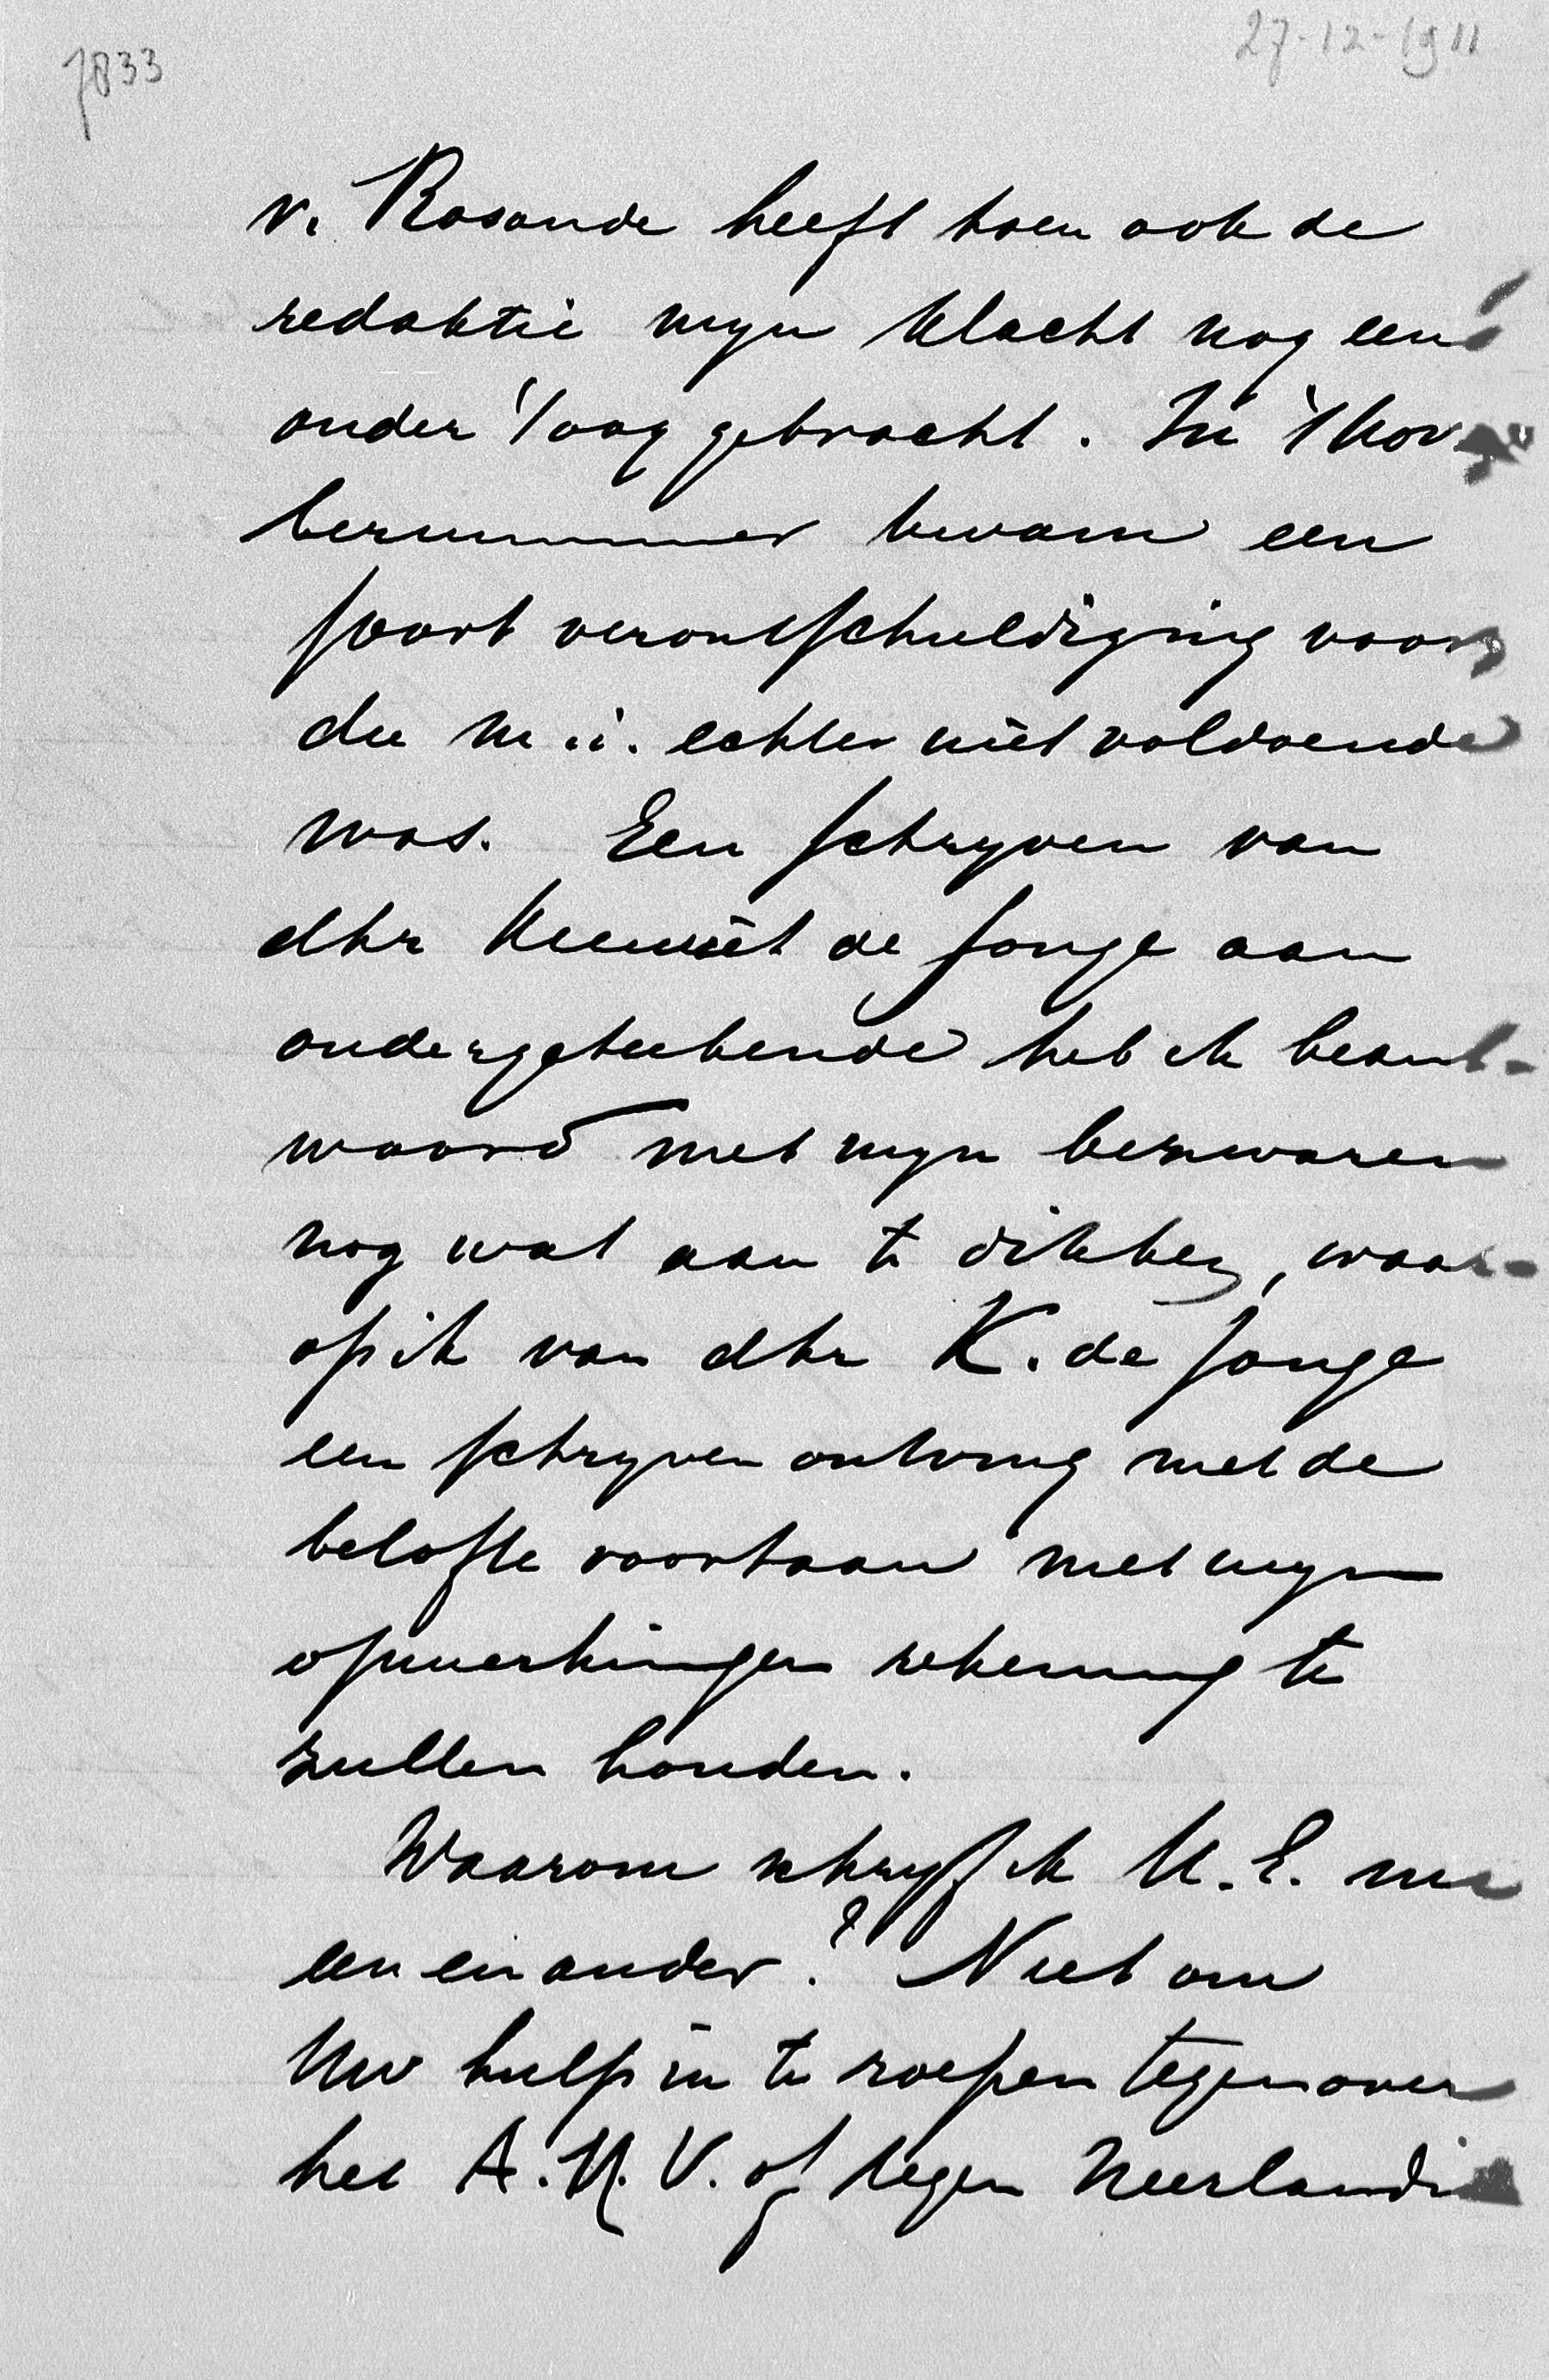 7833
27-12-1911
v. Rosande heeft toen ook de
redaktie myn klacht nog eens
onder 't oog gebracht. In 't Nov
bernummer kwam een
soort verontschuldiging voor
die m.i. echter niet voldoende
was. Een schryven van
dhr Kiewiet de Jonge aan
ondergetekende heb ik beant-
woord met myn bezwaren
nog wat aan te dikken, waar-
op ik van dhr K. de Jonge
een schryven ontving met de
belofte voortaan met myn
opmerkingen rekening te
zullen houden.
Waarom schryf ik U.E. nu
een en ander? Niet om
Uw hulp in te roepen tegenover
het A.N.V. of tegen Neerlandia